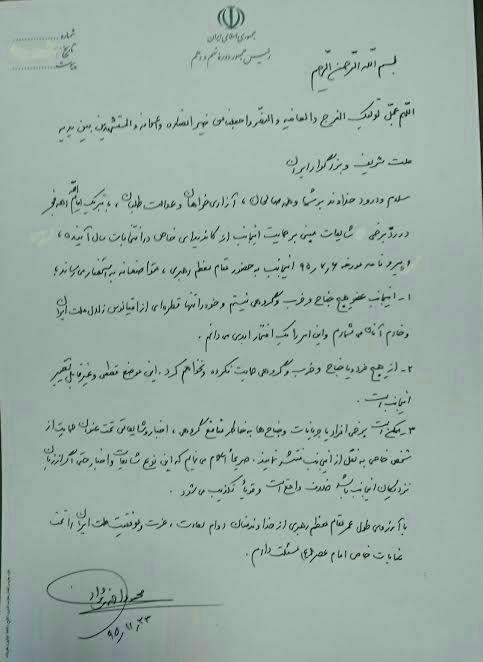 جمهوری اسلامی ایران
رئیس جمهور دوره نهم و دهم
شماره
تاریخ
پیوست
بسم الله الرحمن الرحیم
اللهم عجل لولیک الفرج والعافیه والنصر واجعلنا من خیر انصاره و اعوانه والمستشهدین بین یدیه
ملت شریف و بزرگوار ایران
سلام و درود خداوند بر شما و همه صالحان، آزادی خواهان و عدالت طلبان، با تبریک ایام الله دهه فجر
در رد برخی شایعات مبنی بر حمایت اینجانب از کاندیدای خاص در انتخابات سال آینده،
پیرو نامه مورخه ۹۵/۷/۶ اینجانب به حضور مقام معظم رهبری، متواضعانه به استحضار می رساند:
۱- اینجانب عضو هیچ جناح و حزب و گروهی نیستم و خود را تنها قطره ای از اقیانوس زلال ملت ایران
و خادم آنان می شمارم و این امر را یک افتخار ابدی می دانم.
۲- از هیچ فرد یا جناح و حزب و گروهی حمایت نکرده و نخواهم کرد. این موضع قطعی و غیر قابل تغییر
اینجانب است.
۳- ممکن است برخی افراد یا جریانات و جناح ها به خاطر منافع گروهی، اخبار و شایعاتی تحت عنوان حمایت از
شخص خاصی به نقل از اینجانب منتشر نمایند. صریحاً اعلام می نمایم که این نوع شایعات و اخبار حتی اگر از زبان
نزدیکان اینجانب باشد خلاف واقع است و قویاً تکذیب می شود.
با آرزوی طول عمر مقام معظم رهبری از خداوند منان دوام سعادت، عزت و موفقیت ملت ایران را تحت
عنایات خاص امام عصر (ع) مسئلت دارم.
محمود احمدی نژاد
۹۵/۱۱/۲۳